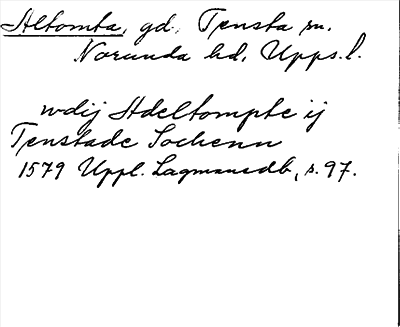 Altomta, gd, Tensta sn.
Norunda hd, Upps.l.
wdij Adeltompte ij
Tenstade Sochenn
1579 Uppl. Lagmansdb, s. 97.